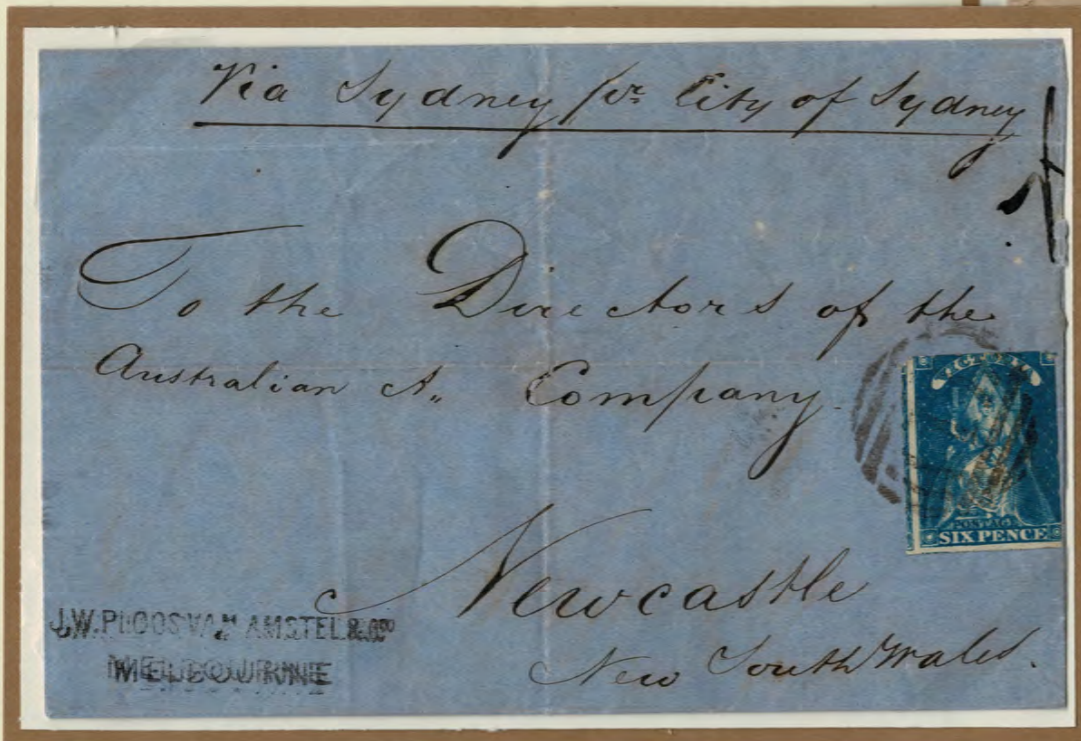 Via Sydney pr City of Sydney
To the Directors of the
Australian A,, Company.
Newcastle
New South Wales.
J.W. PLOOS VAN AMSTEL & Co
MELBOURNE
VICTORIA
POSTAGE
SIX PENCE